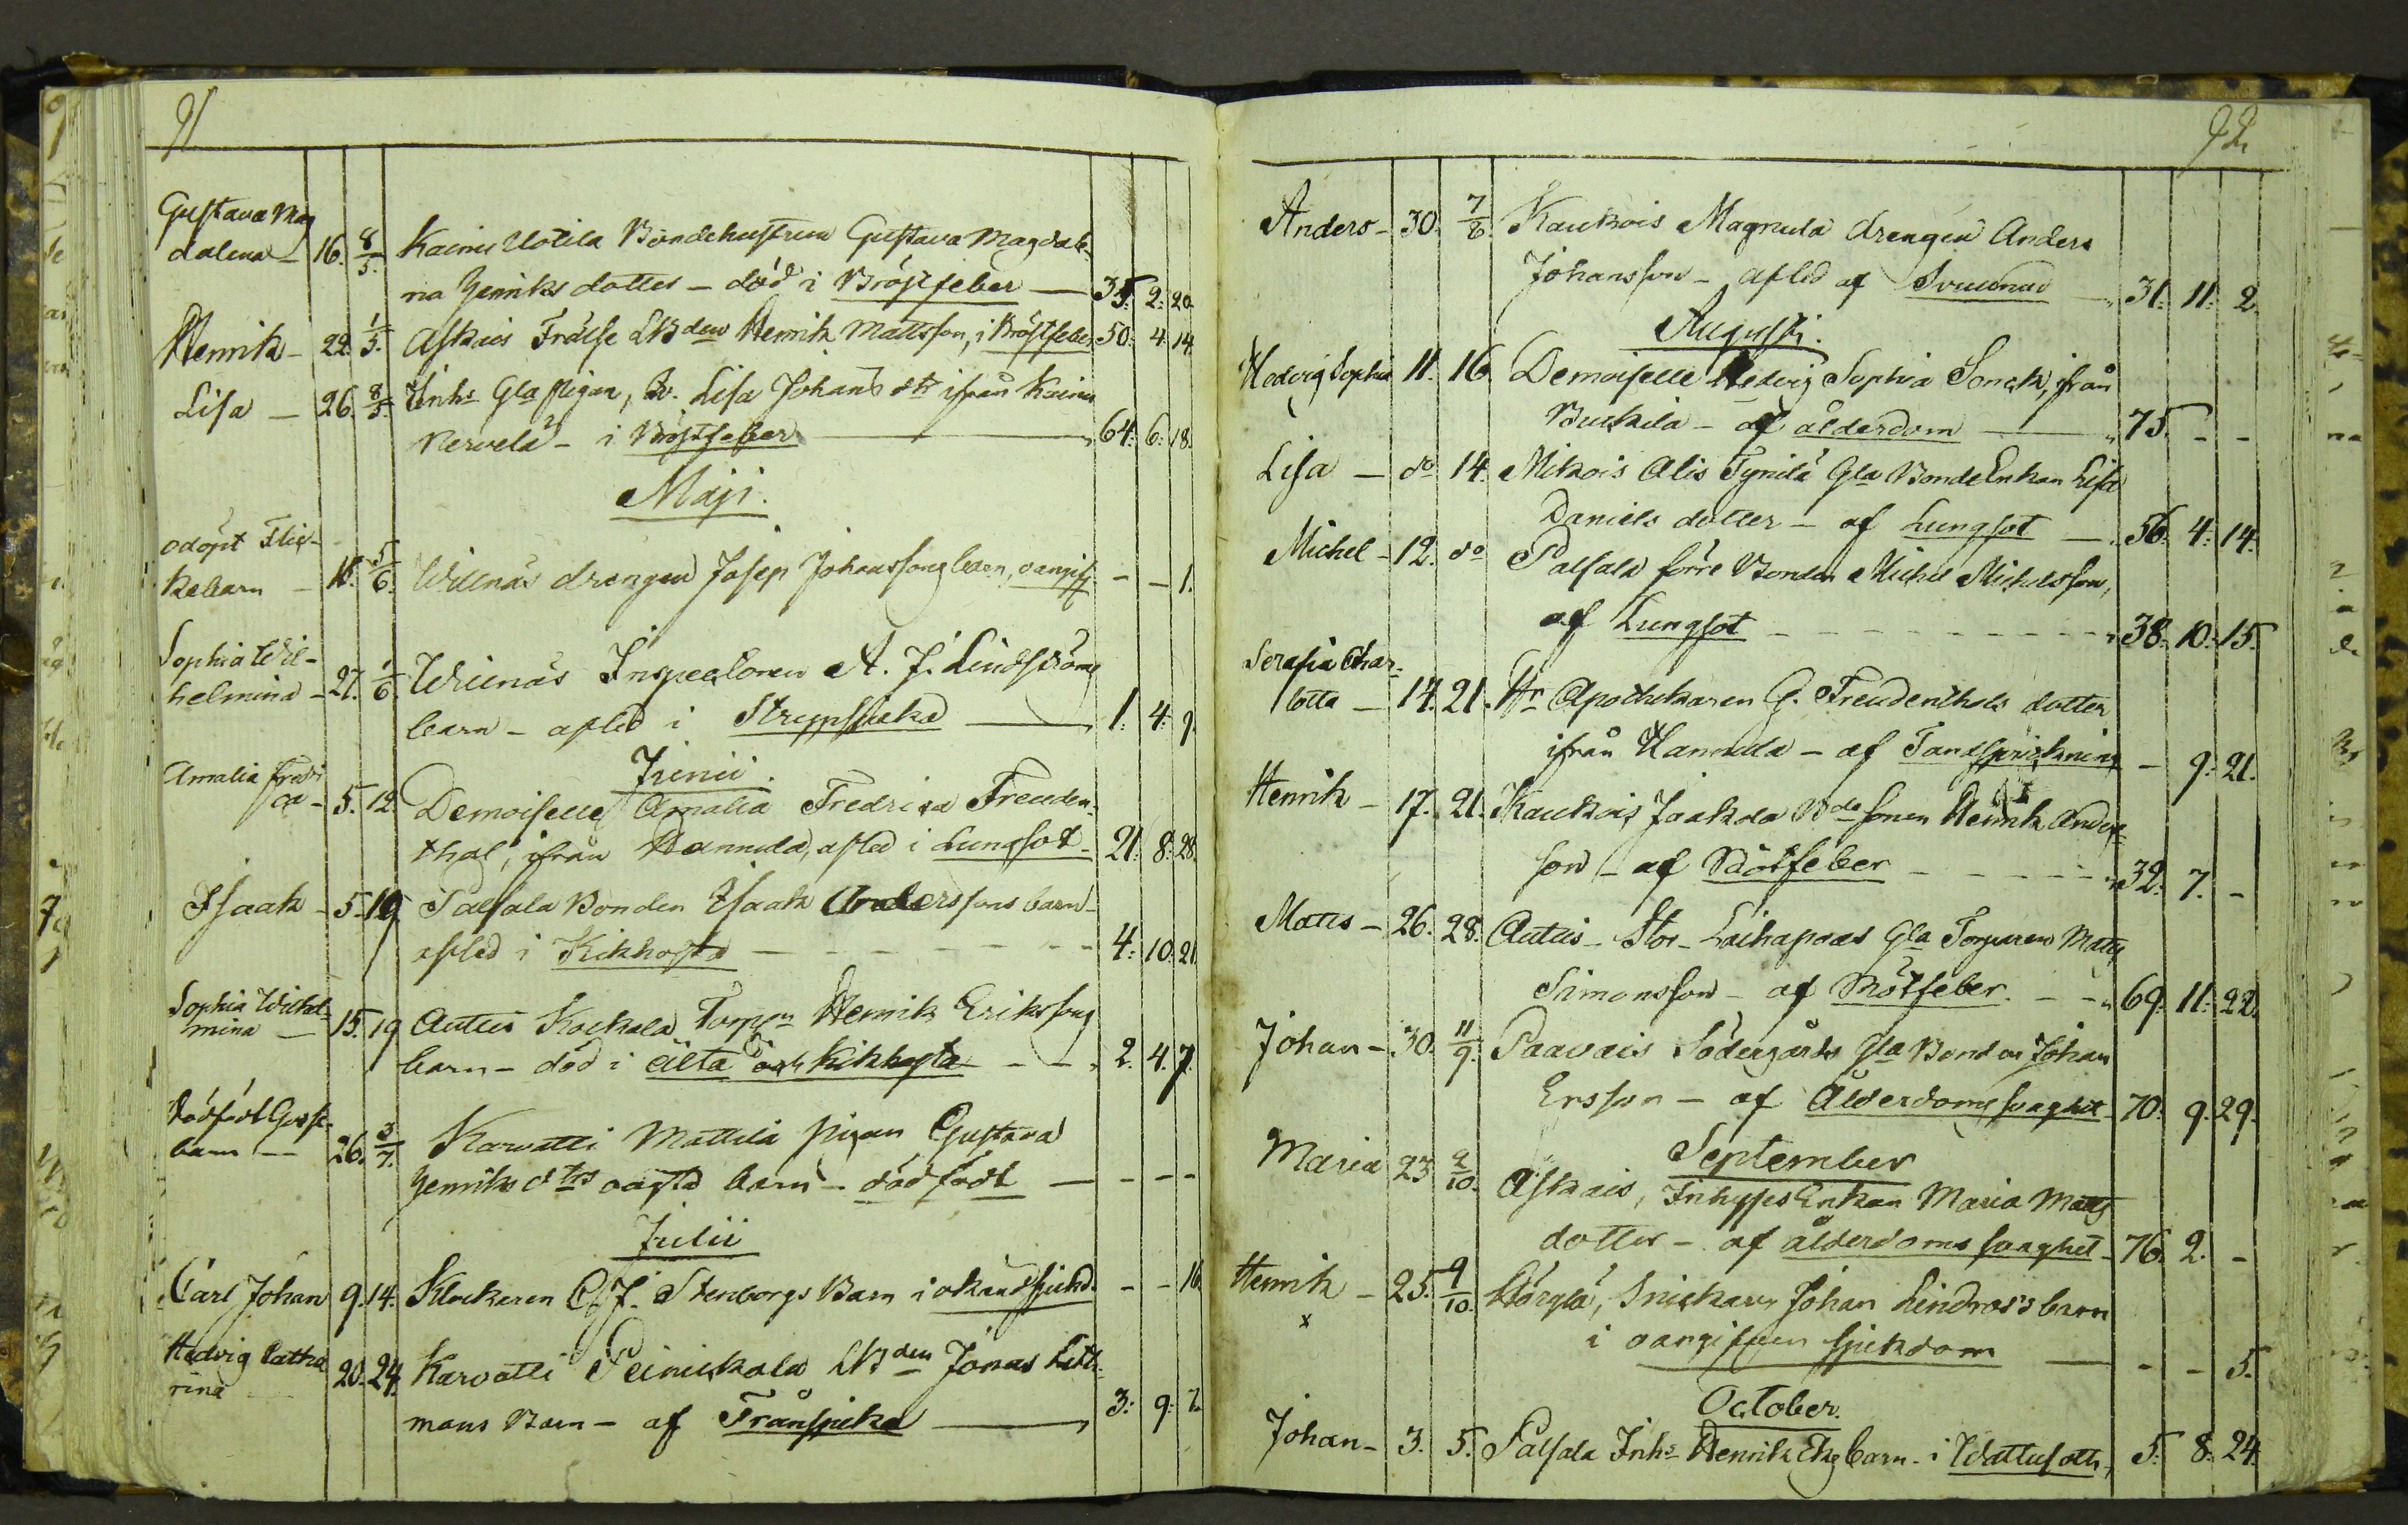 91
Gustava Mag
dalena - 16. 8/5. Kainu Uotila Bondehustrun Gustava Magdale-
na Henriks dotter - död i Bröstfeber - 35. 2. 20.
Henrik - 22. 1/5. Askais Frälse LBden Henrik Mattsson, i Bröstfeber 50. 4. 14.
Lisa - 26. 8/5. Inhs Gla pigan, Lisa Johans dtr ifrån Kainu
Nervelä - i Bröstfeber - 64. 6. 18.
Maji.
odöpt Flic-
kebarn - 18. 5/6. Willnäs drängen Josep Johanssons barn, oangif - - 1.
Sophia Wil-
helmina - 27. 1/6. Willnäs Inspectoren A. J. Lindströms
barn - afled i Strypsjuka - 1. 4. 9.
Junii.
Amalia Fredri
ca - 5. 12. Demoiselle Amalia Fredrica Freuden-
thal, ifrån Hannula, afled i Lungsot - 21. 8. 28.
Isaak - 5. 19 Palsala Bonden Isaak Anderssons barn -
afled i Kikhosta - 4. 10. 21.
Sophia Wilhel-
mina - 15. 19 Autuis Kockala Torpn Henrik Erikssons
barn - död i älta och Kikhosta - 2. 4. 7.
Dödfödt Gosse-
barn - 26. 3/7. Karvatti Mattila pigan Gustava
Henriks dtrs oägta barn - dödfödt - - - -
Julii
Carl Johan 9. 14. Klockaren C. J. Stenborgs Barn i okänd sjukd. - - 16.
Hedvig Catha
rina 20. 24. Karvatti Peinickala LBden Jonas Lith-
mans Barn - af Trånsjuka - 3. 9. 7.
92
Anders - 30. 7/8. Kaukois Magnula drängen Anders
Johansson - afled af Svullnad - 31. 11. 2.
Augusti.
Hedvig Sophia 11. 16. Demoiselle Hedvig Sophia Sonck, ifrån
Buckila - af ålderdom - 75. - -
Lisa - do 14. Mikois Alis Tynilä Gla BondeEnkan Lisa
Daniels dotter - af Lungsot - 56. 4. 14.
Michel - 12. do Palsala förre Bonden Michel Michelsson,
af Lungsot - 38. 10. 15.
Serafia Char-
lotta - 14. 21. Hr Apothekaren G. Freudenthals dotter
ifrån Hannula - af Tandsprickning - 9. 21.
Henrik - 17. 21. Kaukois Jaakola Bde sonen Henrik Anders-
son - af Rötfeber - 32. 7. -
Matts - 26. 28. Autuis - Stor-Laihapoas Gla Torparen Matts
Simonsson - af Rötfeber. - 69. 11. 22.
Johan - 30. 11/9. Paavais Södergårds Gla Bonden Johan
Ersson - af Ålderdoms svaghet - 70. 9. 29.
September
Maria 23 2/10. Askais, Inhyses Enkan Maria Matts
dotter - af ålderdoms svaghet - 76. 2. -
Henrik - 25. 9/10. Snickaren Johan Lindroos's barn
x i oangifven sjukdom - - - 5.
October.
Johan - 3. 5. Palsala Inhs Henrik Eks barn - i Wattusoth, 5. 8. 24.